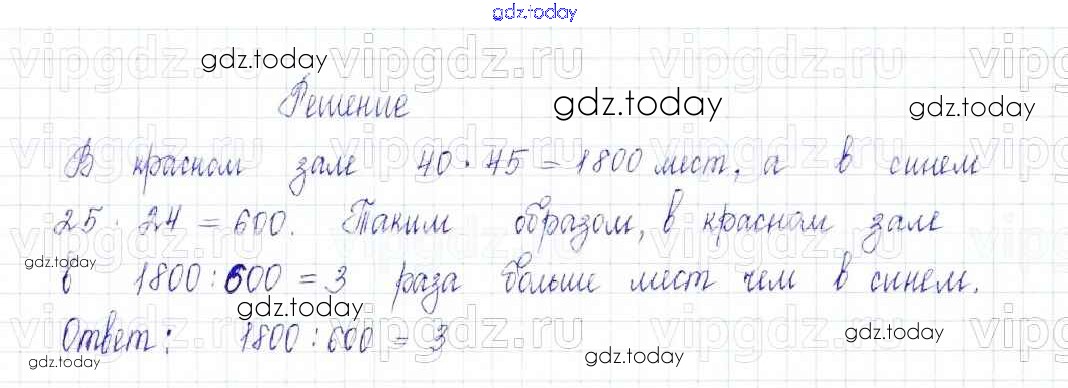 gdz.today
vipgdz.ru vipgdz.ru vipgdz.ru vipgdz.ru
gdz.today
Решение
gdz.today
gdz.today
В красном зале 40 · 45 = 1800 мест, а в синем
25 · 24 = 600. Таким образом, в красном зале
gdz.today
в 1800 : 600 = 3 раза больше мест чем в синем.
gdz.today
Ответ: 1800 : 600 = 3
gdz.today
gdz.today
gdz.today